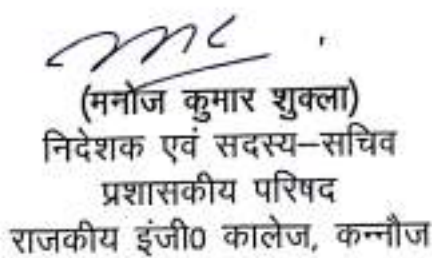 (मनोज कुमार शुक्ला)
निदेशक एवं सदस्य–सचिव
प्रशासकीय परिषद
राजकीय इंजी0 कालेज, कन्नौज